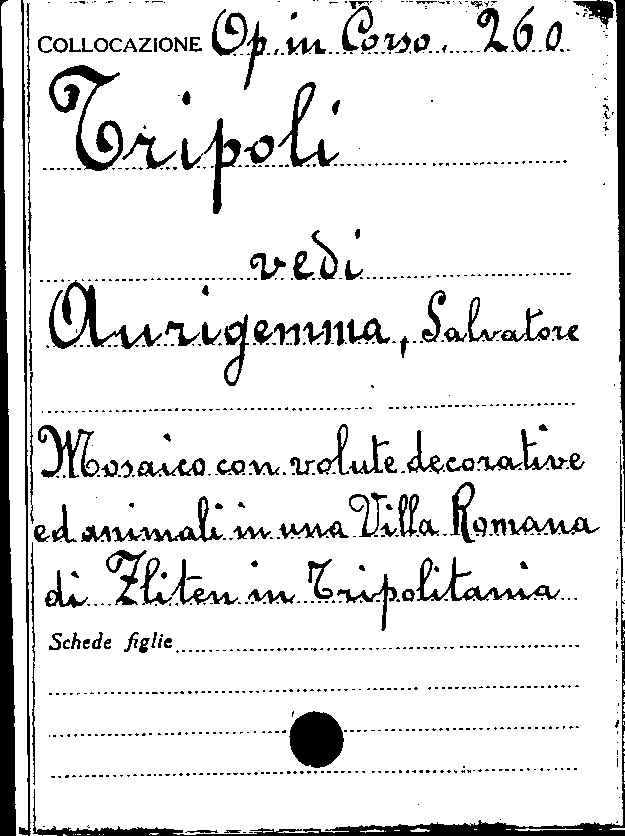 COLLOCAZIONE Op. in Corso. 260
Tripoli
vedi
Aurigemma, Salvatore
Mosaico con volute decorative
ed animali in una Villa Romana
di Zliten in Tripolitania
Schede figlie